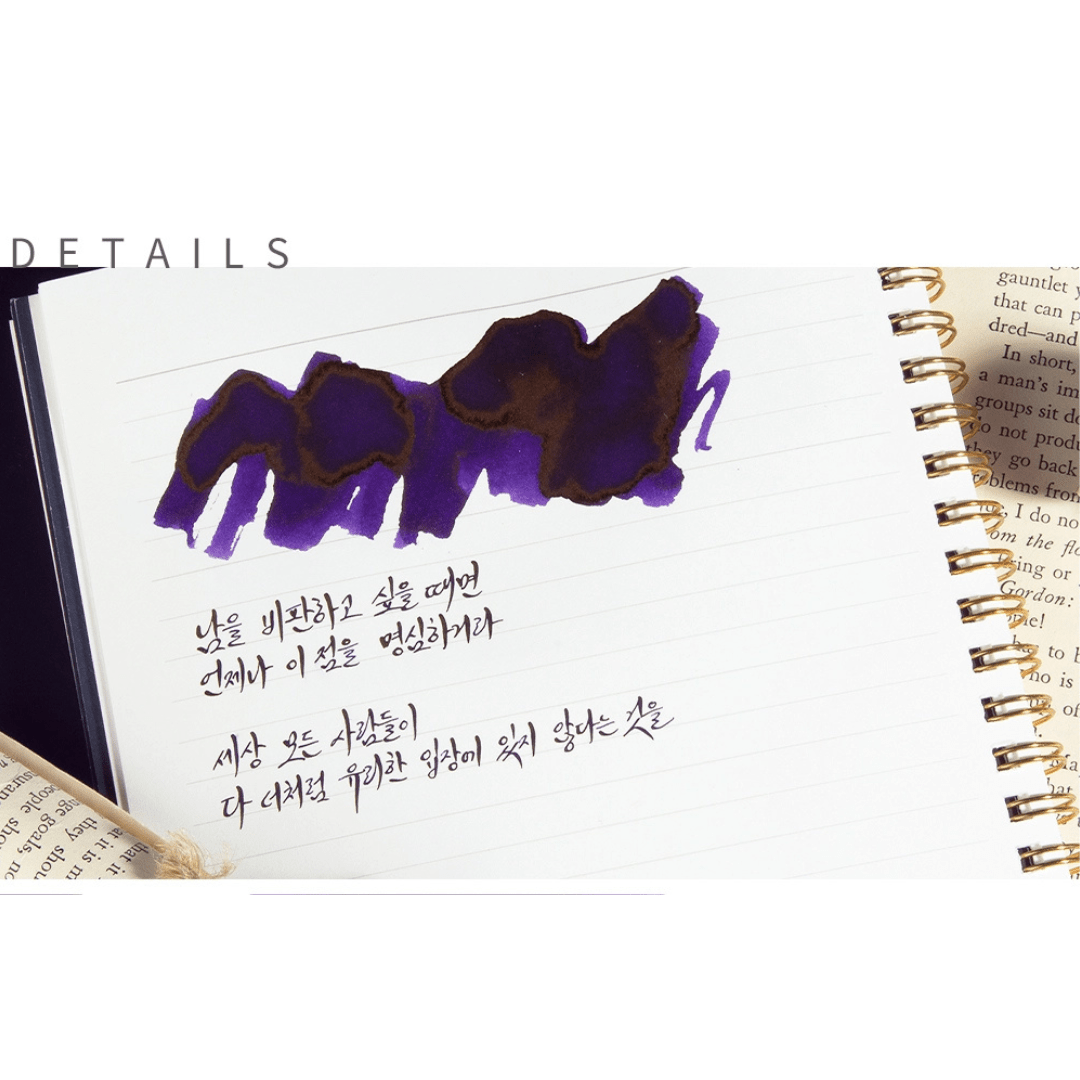 DETAILS
남을 비판하고 싶을 때면
언제나 이 점을 명심하거라
세상 모든 사람들이
다 너처럼 유리한 입장에 있지 않다는 것을
gauntlet
that can
dred—and
In short,
a man's
groups sit
do not
they go back
from
I do no
om the
ring or
Gordon:
to
is
of
people
goals,
they
that it is
that it